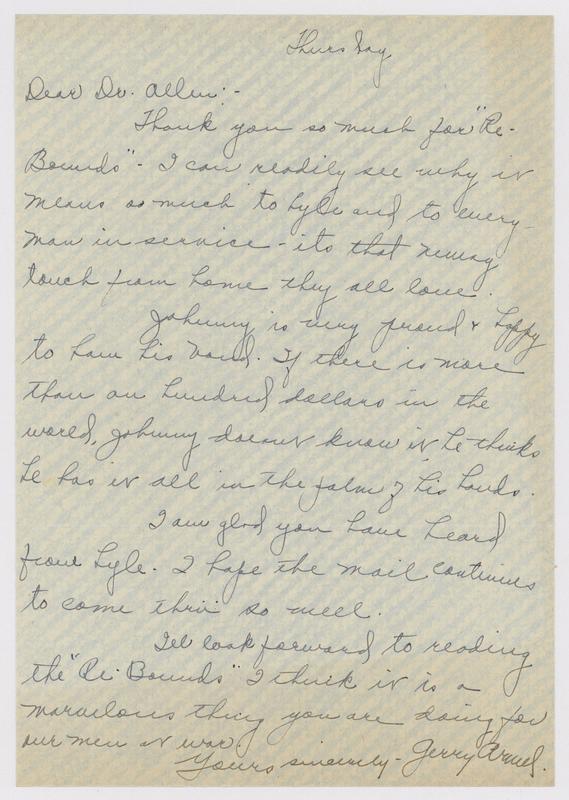 Thursday
Dear Dr. Allen:-
Thank you so much for "Re-
Bounds" - I can readily see why it
means so much to Lyle and to every-
man in service - its that newsy
touch from home they all love.
Johnny is very proud & happy
to have his bond. If there is more
than on hundred dollars in the
world, Johnny doesnt know it he thinks
he has it all in the palm of his hands.
I am glad you have heard
from Lyle. I hope the mail continues
to come thru so well.
Ill look forward to reading
the "Re-Bounds" I think it is a
marvelous thing you are doing for
our men at war.
Yours sincerely - Jerry